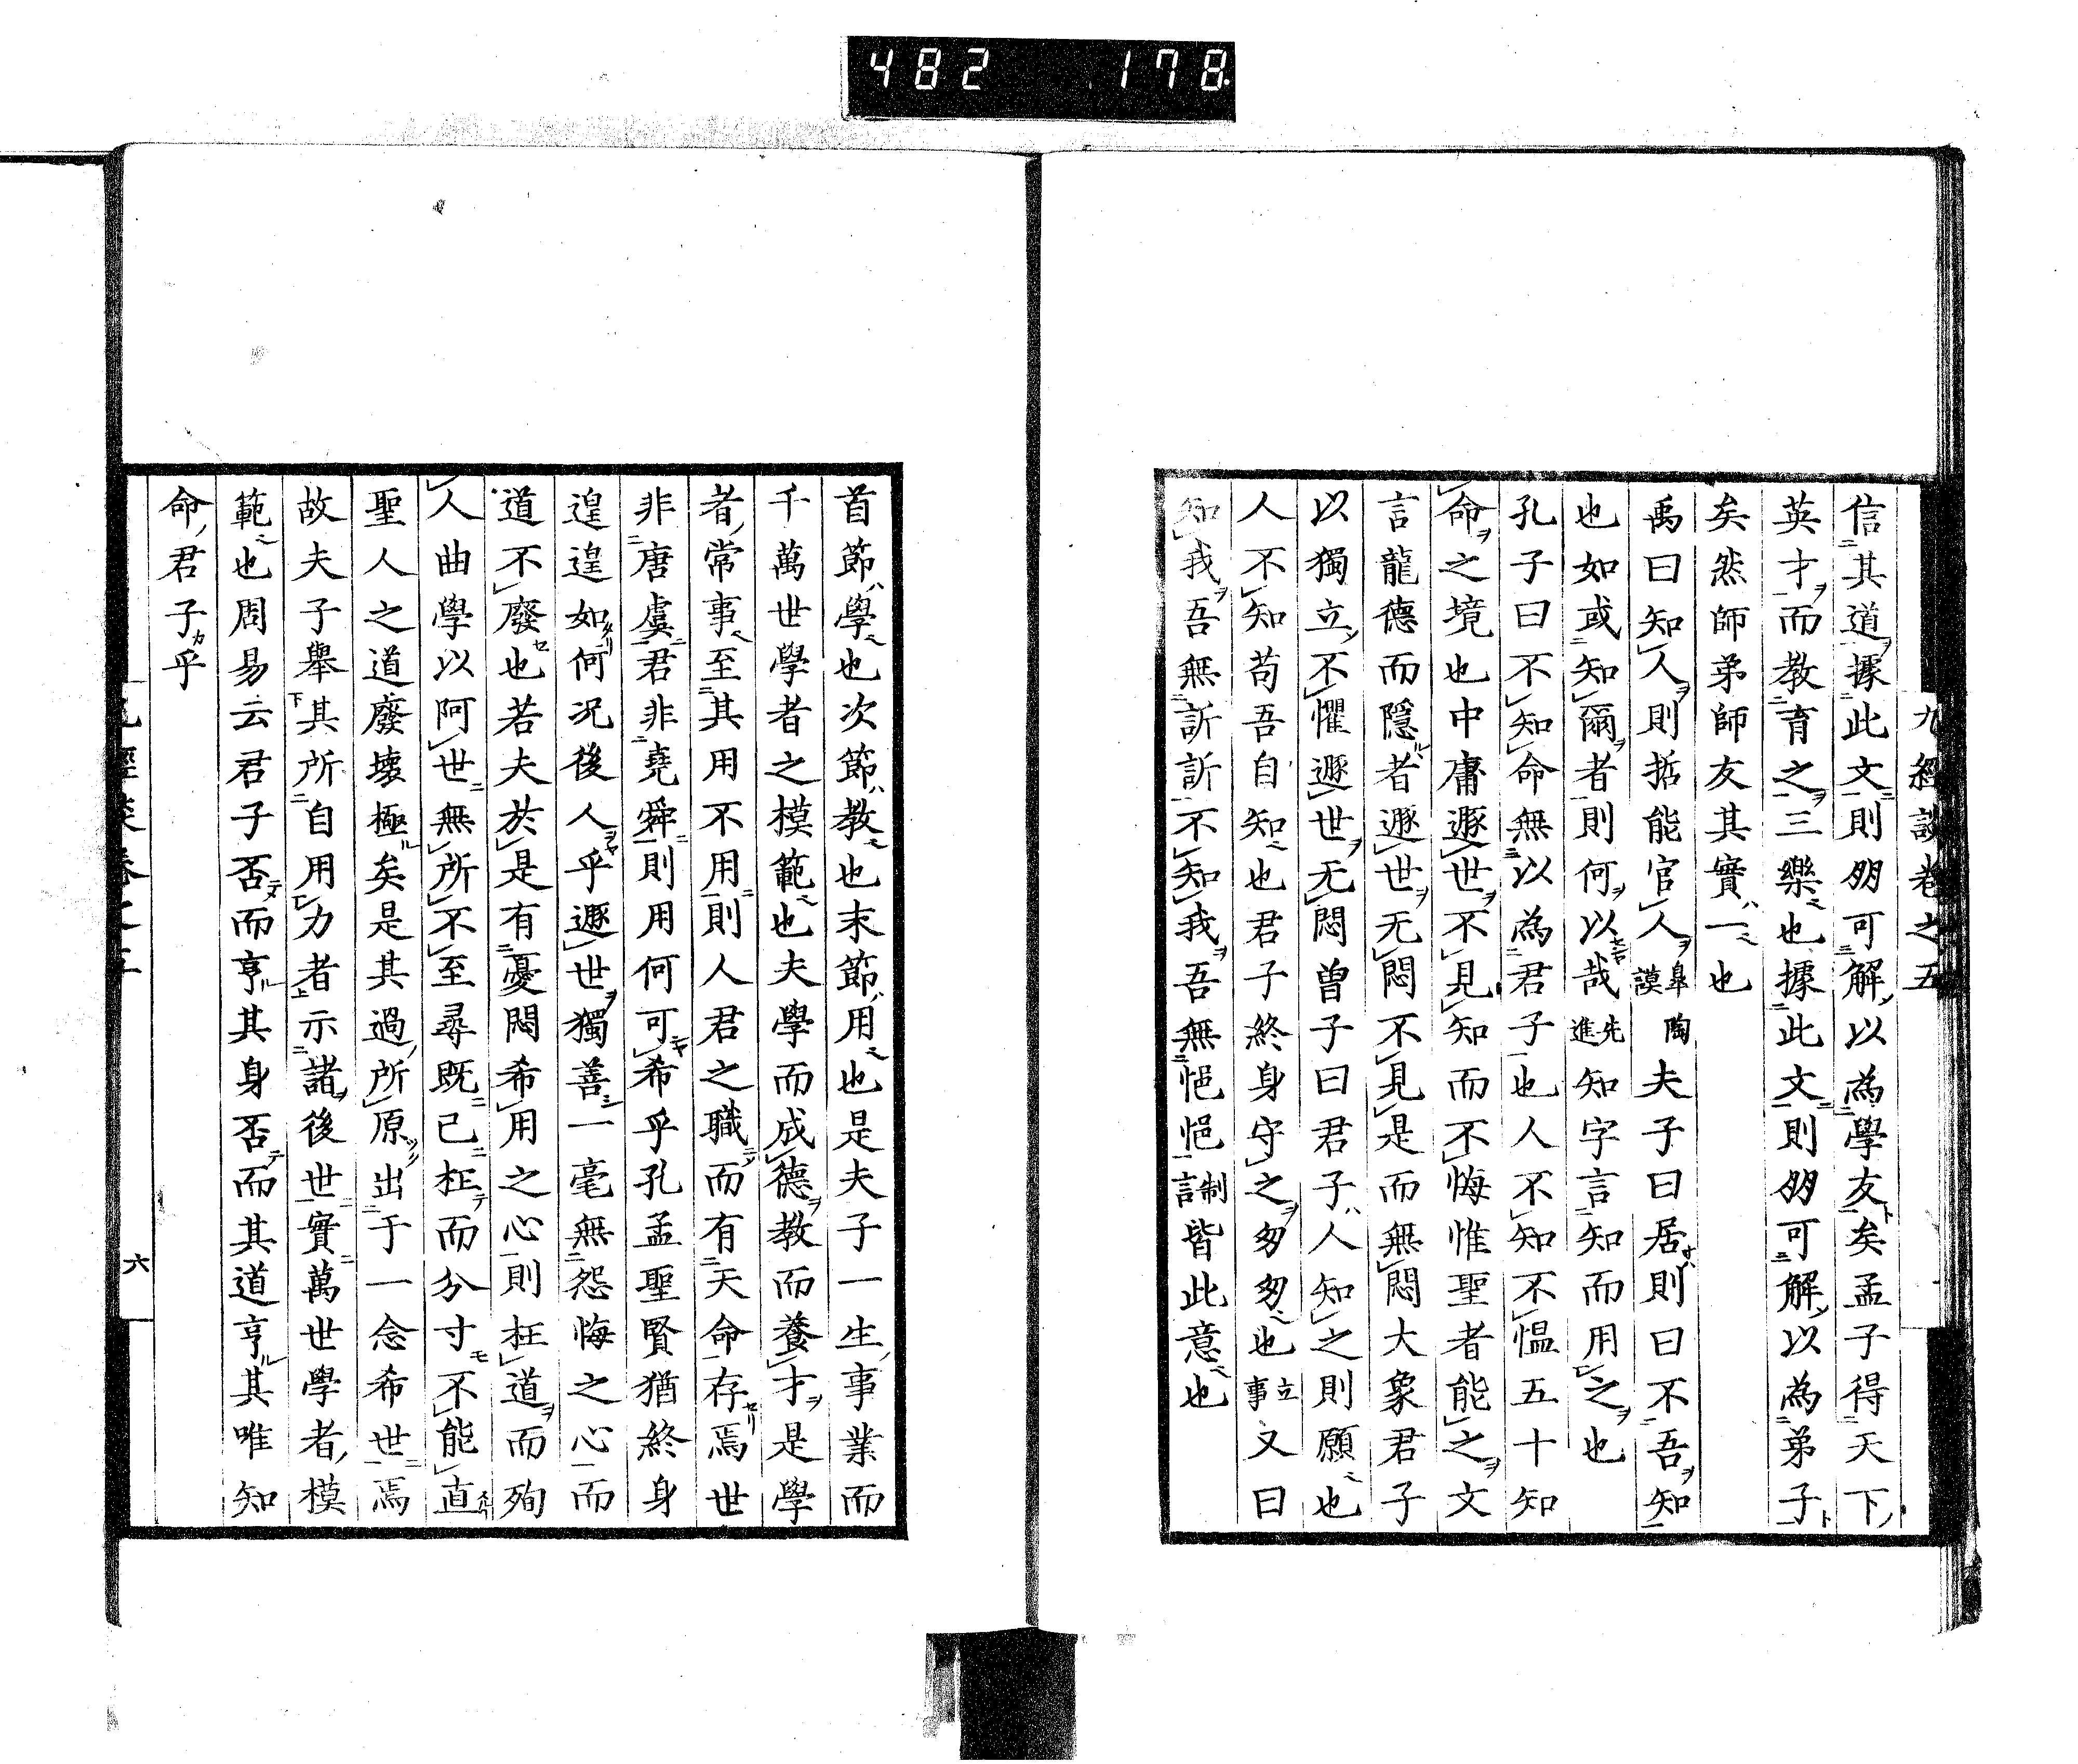 482 178
九經談卷之五
信其道據此文則朋可解以為學友矣孟子得天下
英才而教育之三樂也據此文則朋可解以為弟子
矣然師弟師友其實一也
禹曰知人則哲能官人皋陶謨夫子曰居則曰不吾知
也如或知爾者則何以哉先進知字言知而用之也
孔子曰不知命無以為君子也人不知不慍五十知
命之境也中庸遯世不見知而不悔惟聖者能之文
言龍德而隱者遯世无悶不見是而無悶大象君子
以獨立不懼遯世无悶曽子曰君子人知之則願也
人不知苟吾自知也君子終身守之匇匇也立事又曰
知我吾無訢訢不知我吾無悒悒制言皆此意也
首節學也次節教也末節用也是夫子一生事業而
千萬世學者之模範也夫學而成德教而養才是學
者常事至其用不用則人君之職而有天命存焉世
非唐虞君非堯舜則用何可希乎孔孟聖賢猶終身
遑遑如何況後人乎遯世獨善一毫無怨悔之心而
道不廢也若夫於是有憂悶希用之心則枉道而殉
人曲學以阿世無所不至尋既已枉而分寸不能直
聖人之道廢壞極矣是其過所原出于一念希世焉
故夫子舉其所自用力者示諸後世實萬世學者模
範也周易云君子否而亨其身否而其道亨其唯知
命君子乎
六